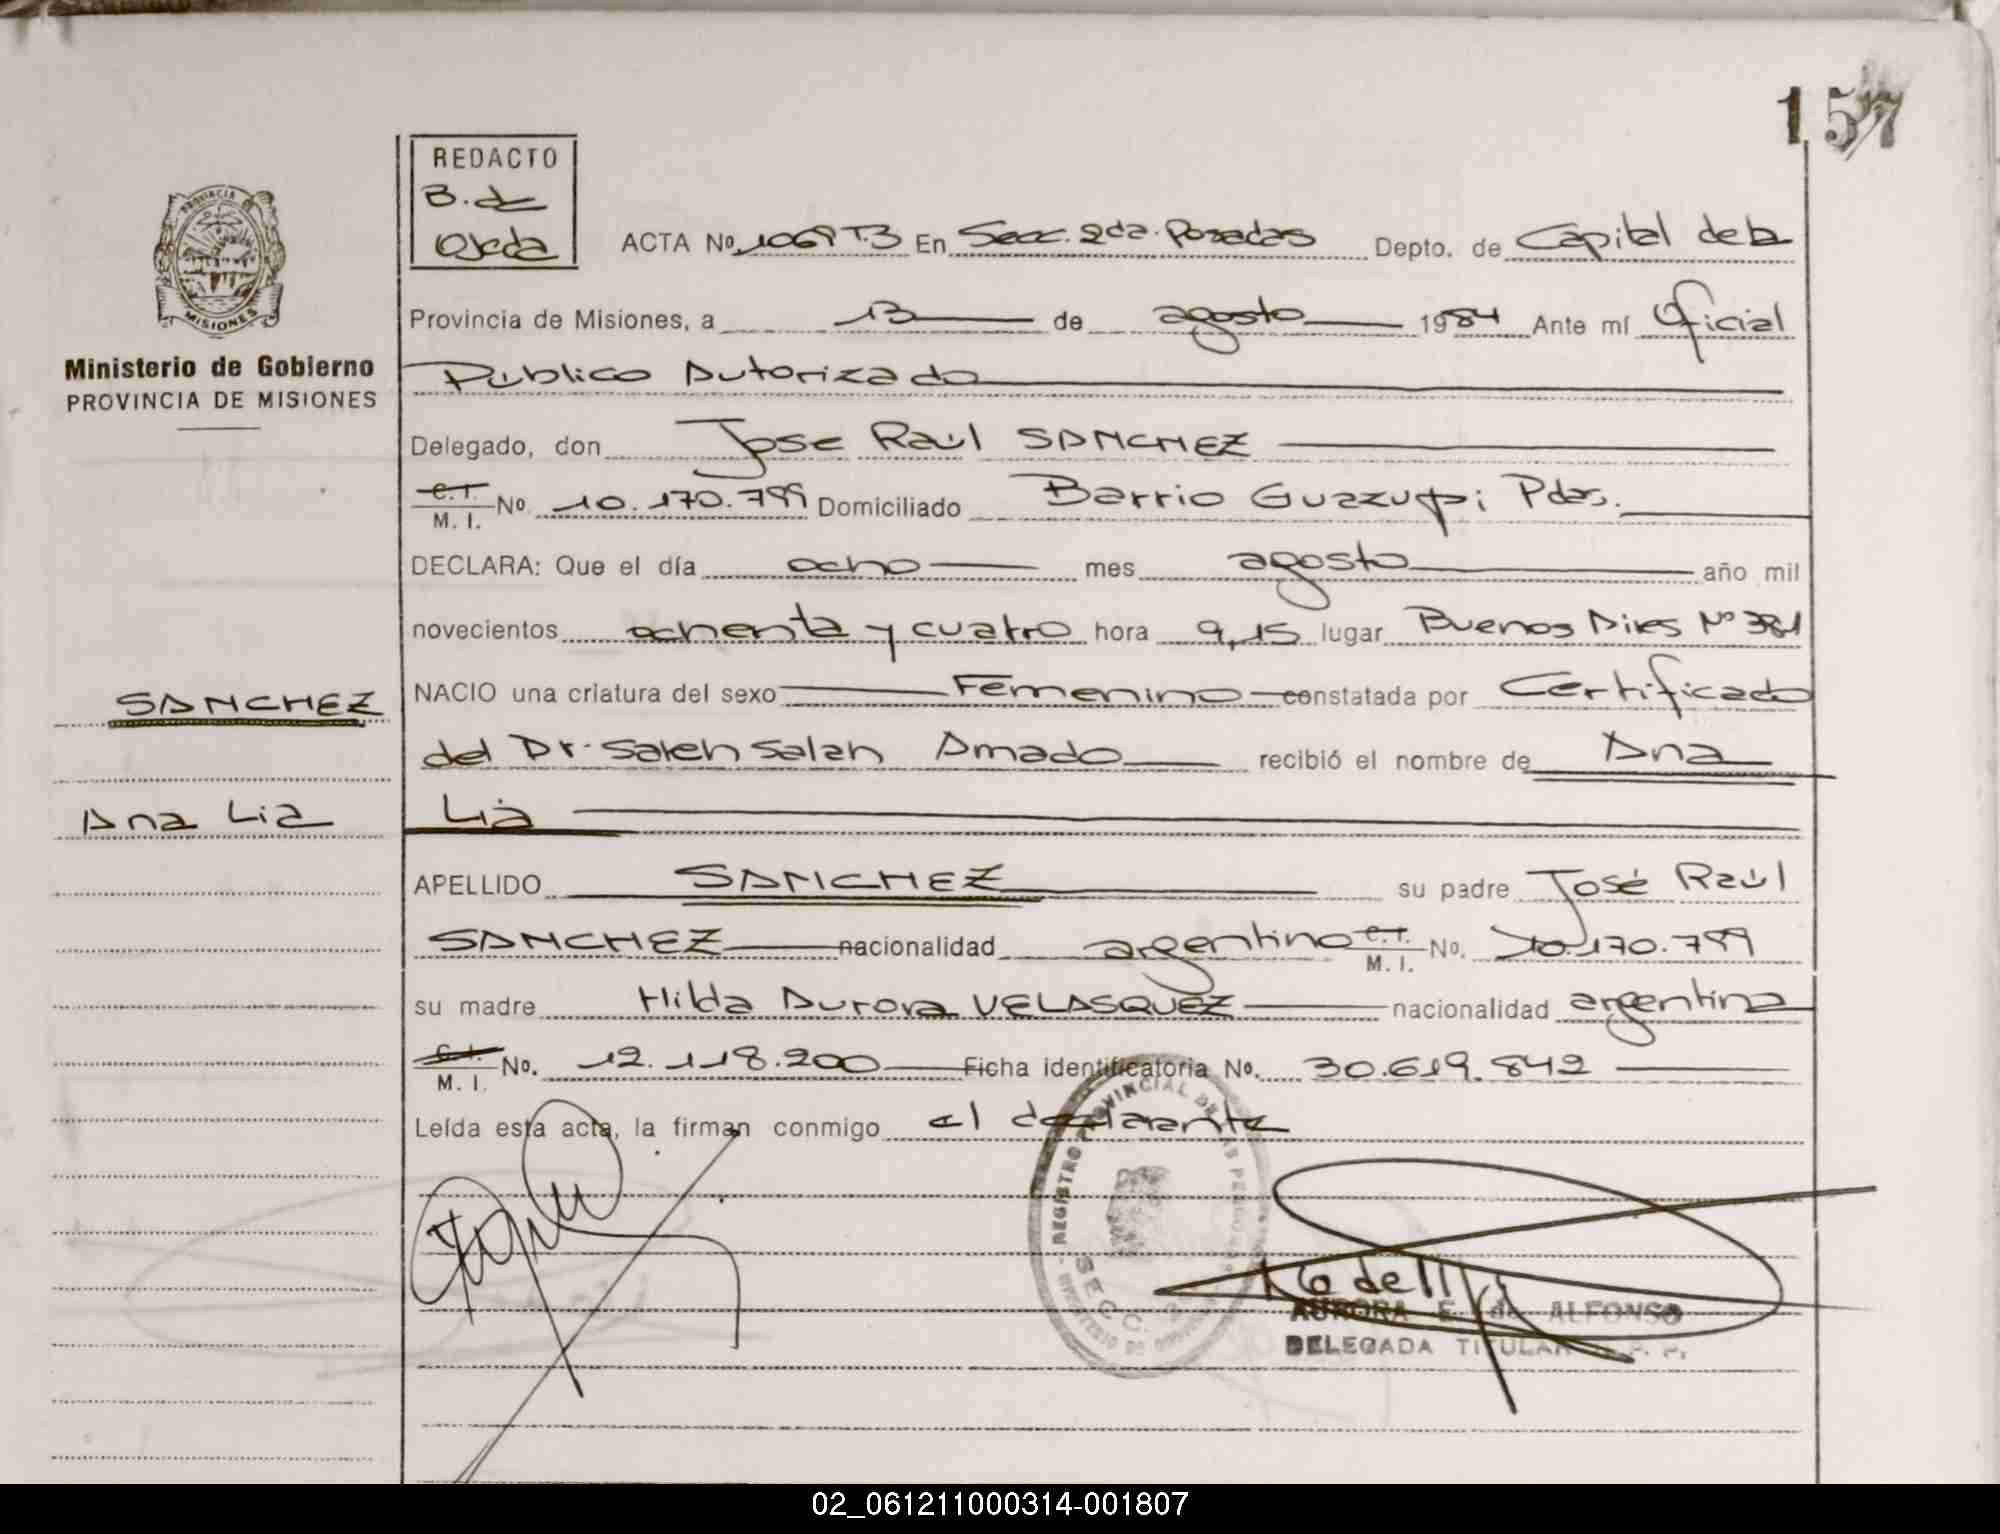 157
REDACTO
B. de
Ojeda
PROVINCIA
MISIONES
Ministerio de Gobierno
PROVINCIA DE MISIONES
ACTA No. 1069 T.3 En Secc. 2da. Posadas Depto. de Capital de la
Provincia de Misiones, a 13 de agosto 1984 Ante mí Oficial
Público Autorizado
Delegado, don Jose Raúl SANCHEZ
C.I. M. I. No. 10.170.799 Domiciliado Barrio Guazupi Pdas.
DECLARA: Que el día ocho mes agosto año mil
novecientos ochenta y cuatro hora 9,15 lugar Buenos Aires Nº 381
NACIO una criatura del sexo Femenino constatada por Certificado
del Dr. Saleh Salah Amado recibió el nombre de Ana
Lia
SANCHEZ
Ana Lia
APELLIDO SANCHEZ su padre José Raúl
SANCHEZ nacionalidad argentino C.I. M. I. No. 10.170.799
su madre Hilda Aurora VELASQUEZ nacionalidad argentina
C.I. M. I. No. 12.118.200 Ficha identificatoria No. 30.619.842
Leída esta acta, la firman conmigo el declarante
REGISTRO PROVINCIAL DE LAS PERSONAS
SECC.
MINISTERIO DE GOBIERNO
AURORA E. de ALFONSO
DELEGADA TITULAR
02_061211000314-001807